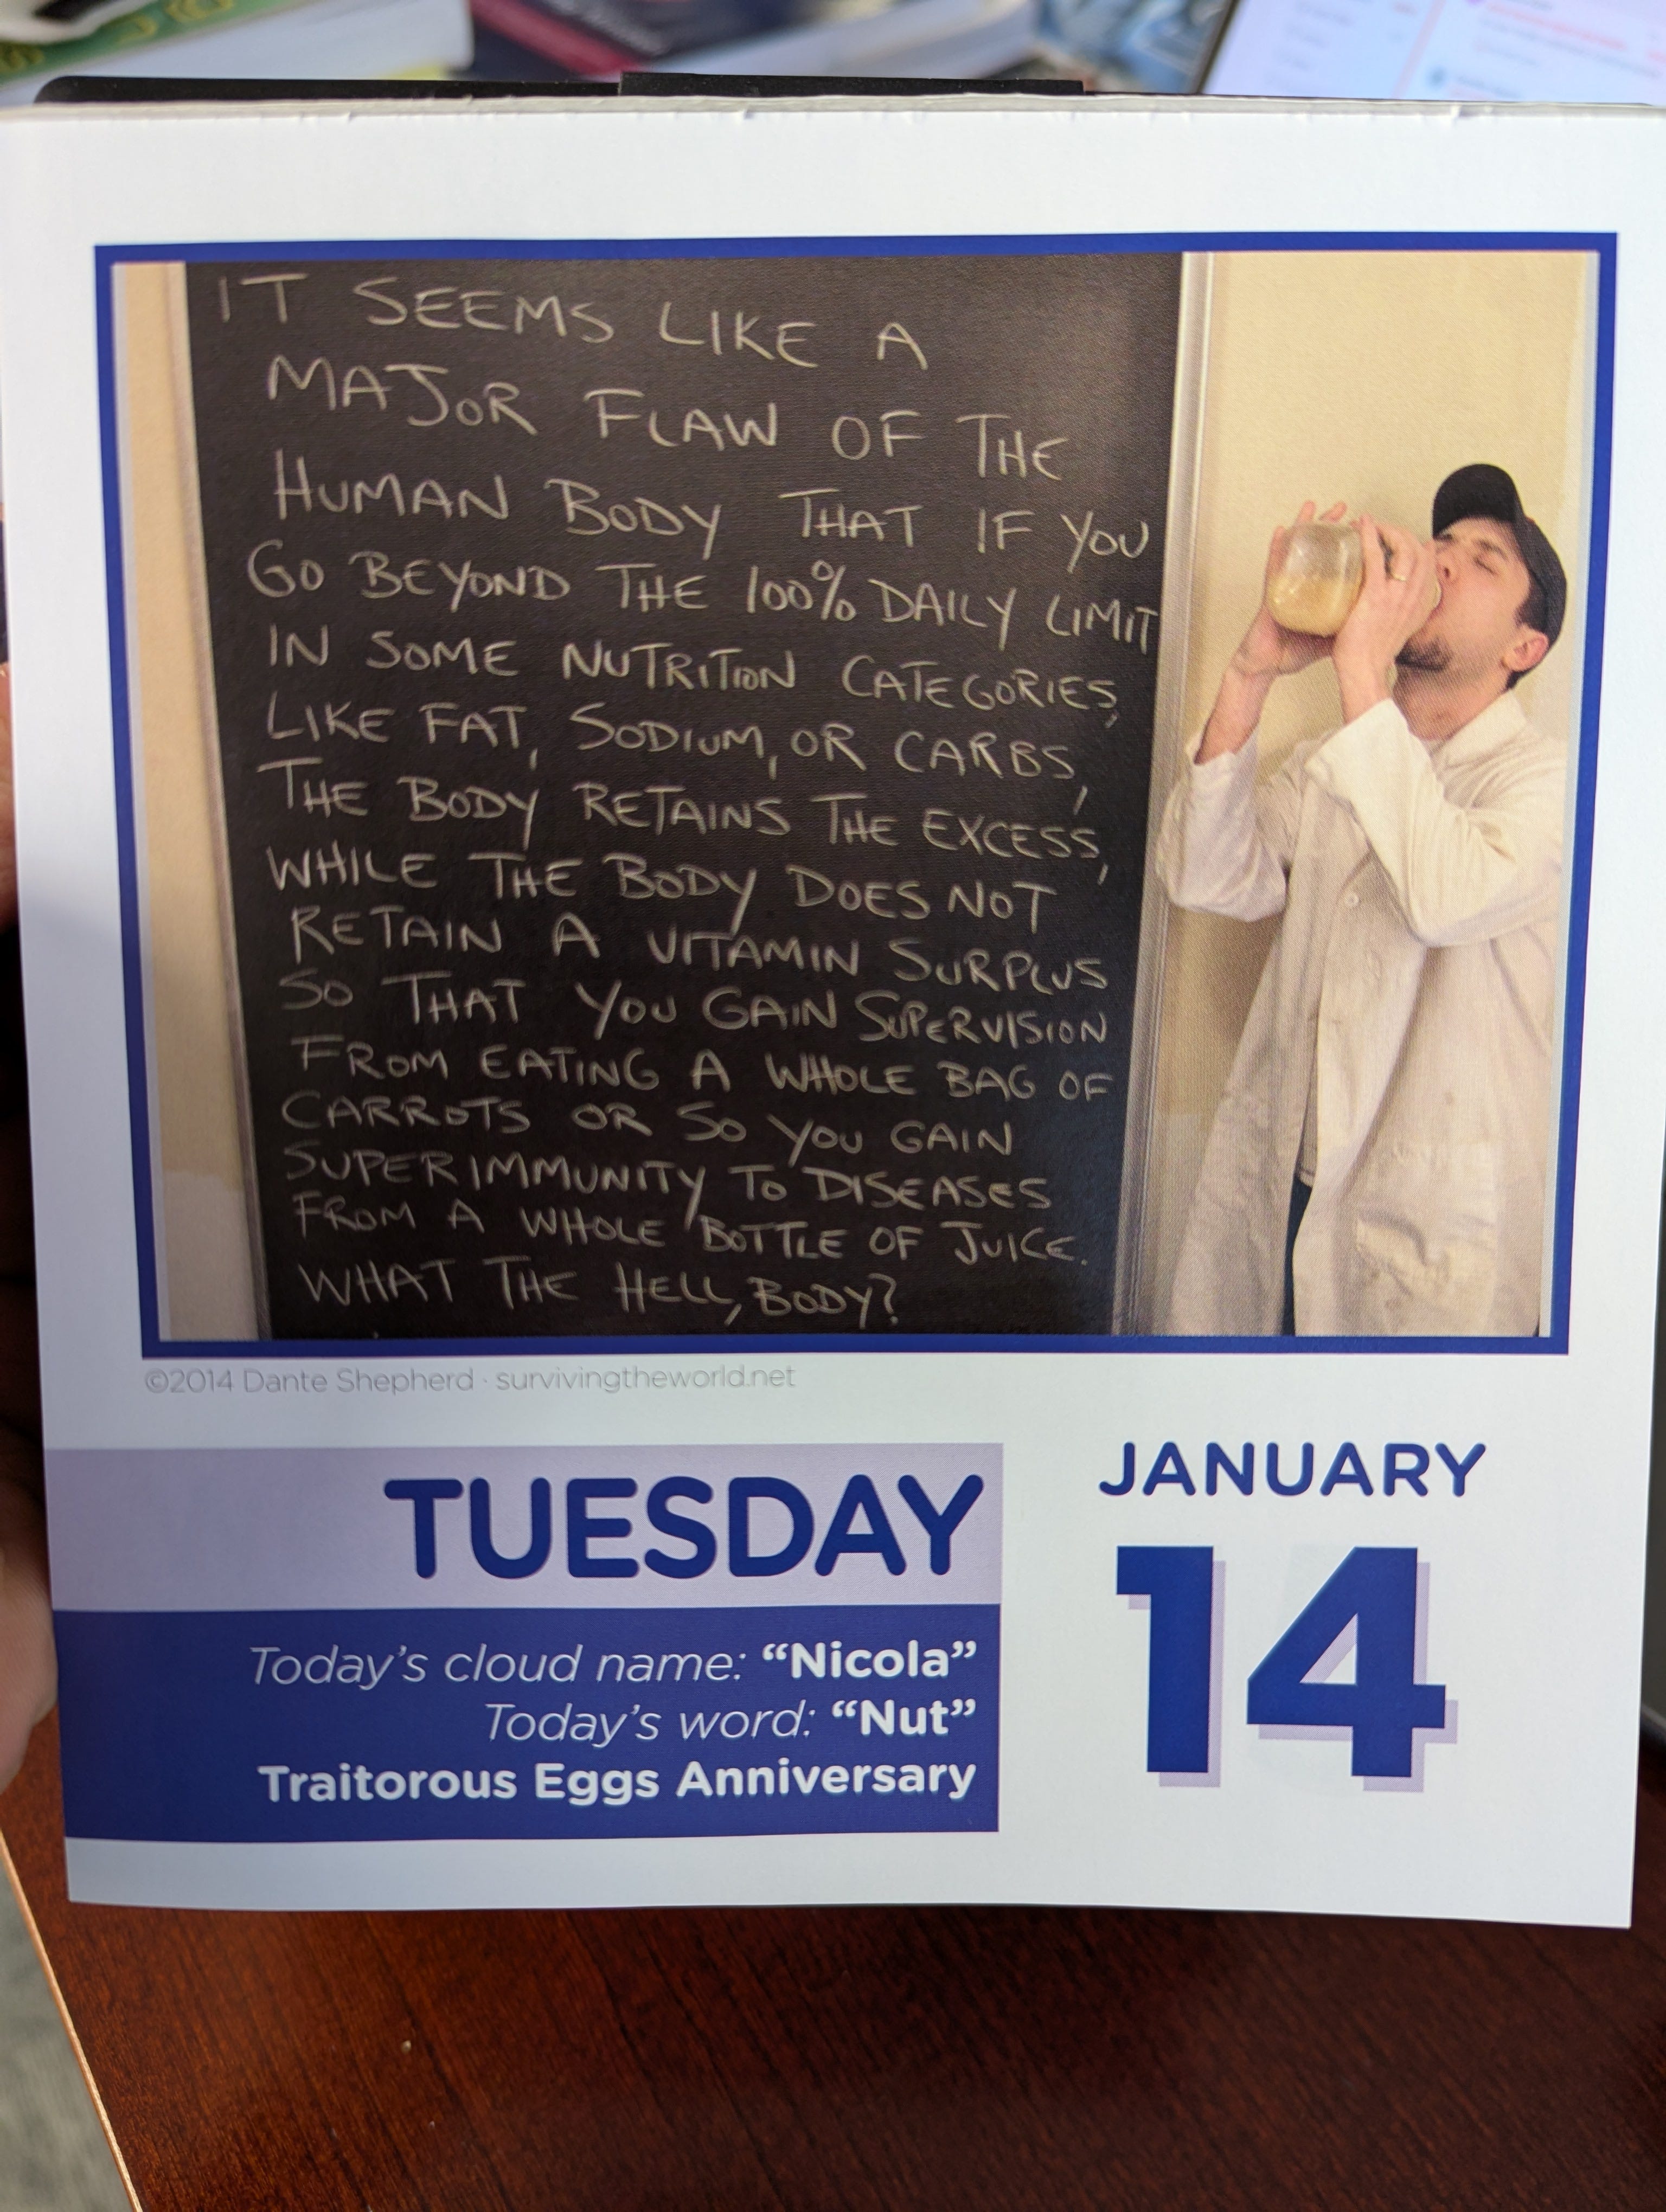 IT SEEMS LIKE A
MAJOR FLAW OF THE
HUMAN BODY THAT IF YOU
GO BEYOND THE 100% DAILY LIMIT
IN SOME NUTRITION CATEGORIES,
LIKE FAT, SODIUM, OR CARBS,
THE BODY RETAINS THE EXCESS,
WHILE THE BODY DOES NOT
RETAIN A VITAMIN SURPLUS
SO THAT YOU GAIN SUPERVISION
FROM EATING A WHOLE BAG OF
CARROTS OR SO YOU GAIN
SUPERIMMUNITY TO DISEASES
FROM A WHOLE BOTTLE OF JUICE.
WHAT THE HELL, BODY?
©2014 Dante Shepherd · survivingtheworld.net
TUESDAY
JANUARY
14
Today's cloud name: “Nicola”
Today's word: “Nut”
Traitorous Eggs Anniversary